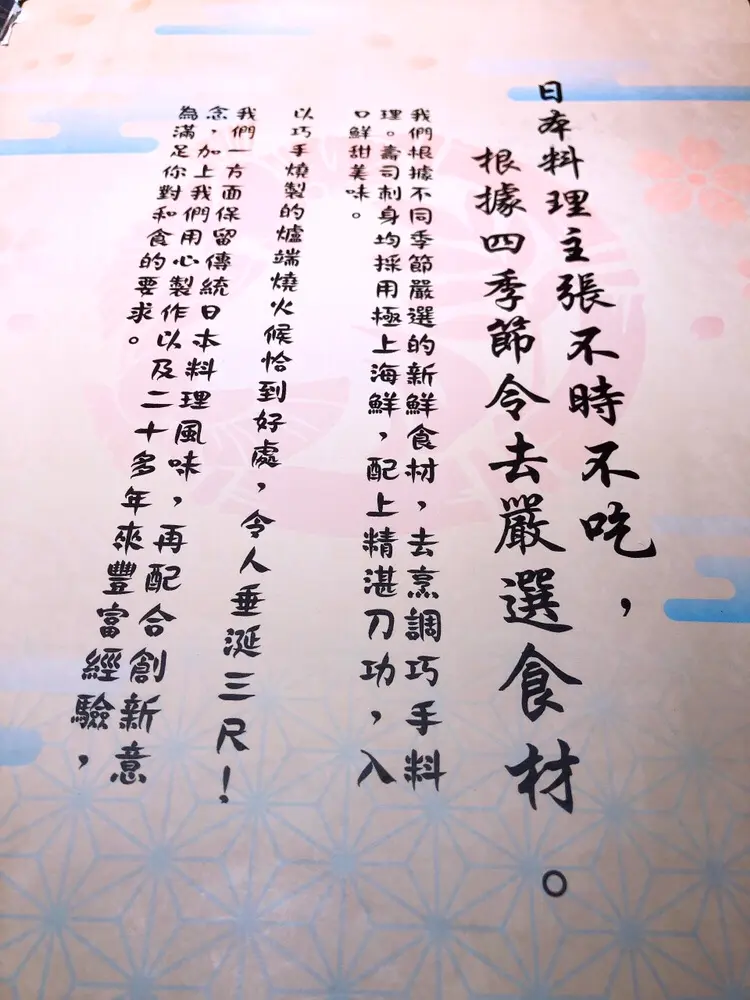 日本料理主張不時不吃，
根據四季節令去嚴選食材。
我們根據不同季節嚴選的新鮮食材，去烹調巧手料
理。壽司刺身均採用極上海鮮，配上精湛刀功，入
口鮮甜美味。
以巧手燒製的爐端燒火候恰到好處，令人垂涎三尺！
我們一方面保留傳統日本料理風味，再配合創新意
念，加上我們用心製作以及二十多年來豐富經驗，
為滿足你對和食的要求。